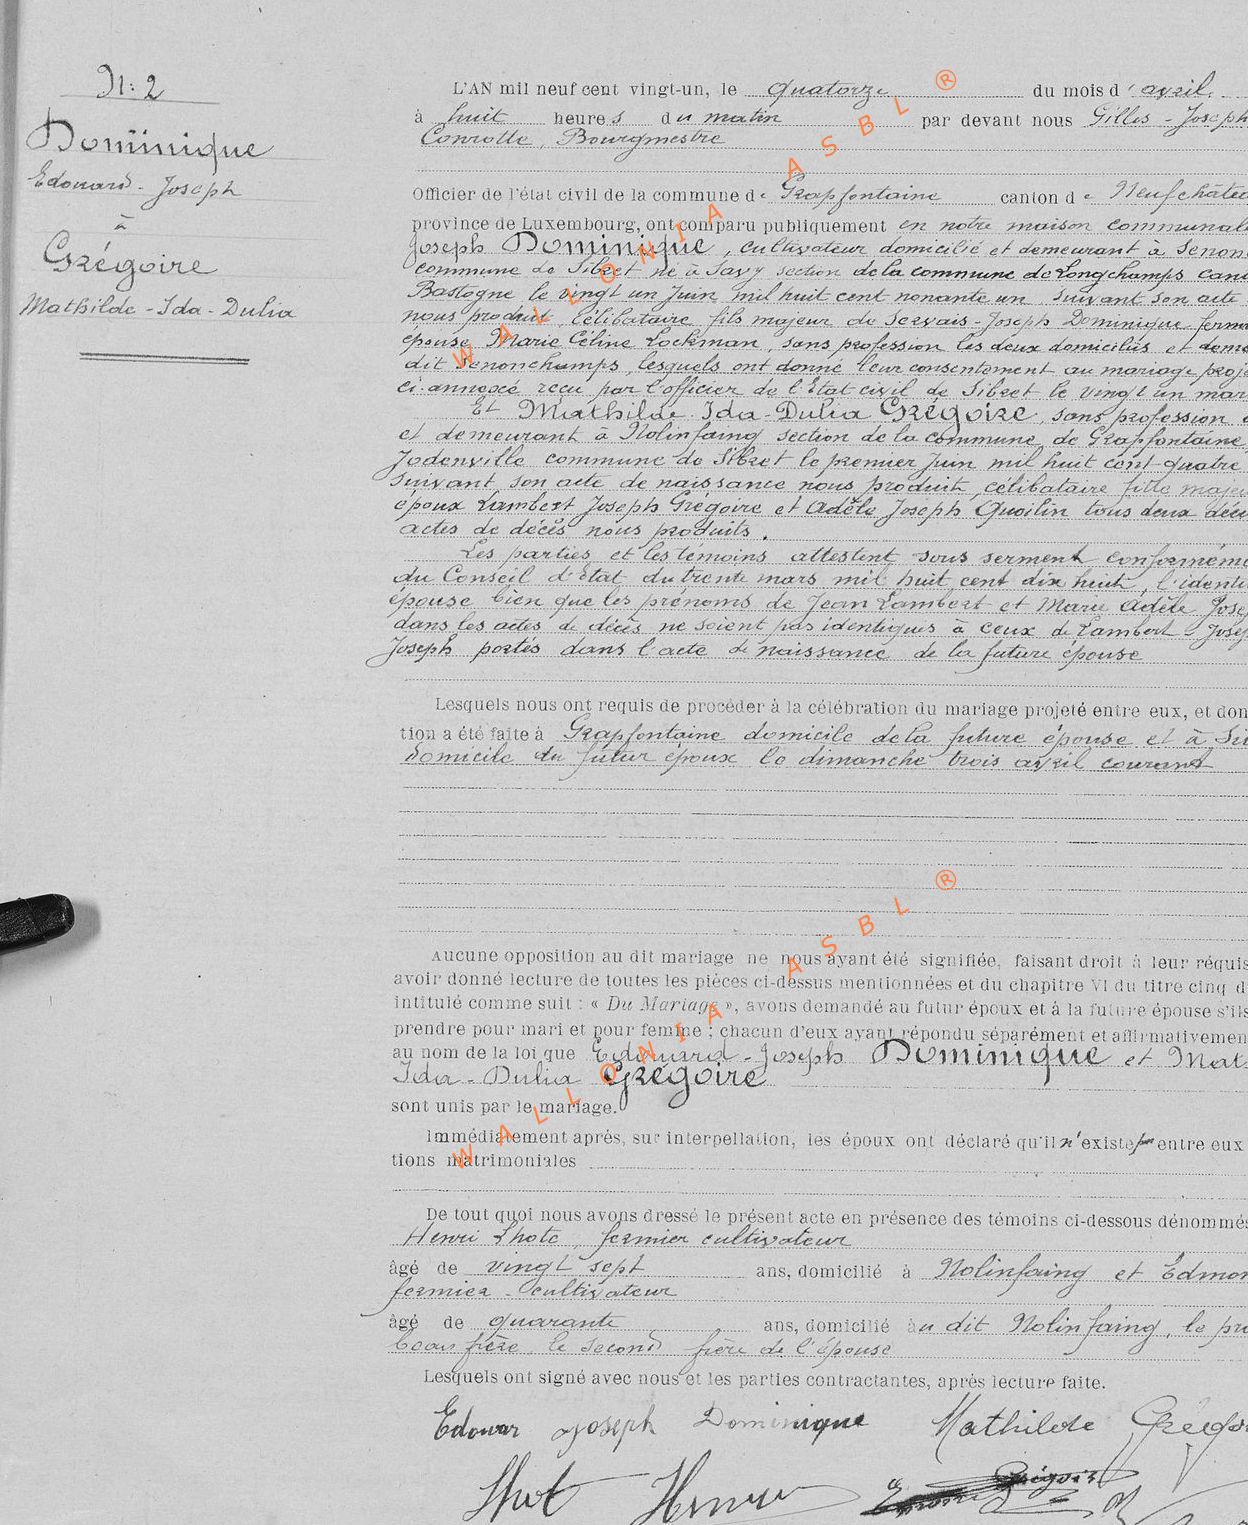 N: 2
Dominique
Edouard - Joseph
à
Grégoire
Mathilde - Ida - Dulia
L'AN mil neuf cent vingt-un, le quatorze du mois d'avril.
à huit heures du matin par devant nous Gilles - Joseph
Conrotte, Bourgmestre
Officier de l'état civil de la commune de Grapfontaine canton de Neufchâtea
province de Luxembourg, ont comparu publiquement en notre maison communale
Joseph Dominique, cultivateur domicilié et demeurant à Senon
commune de Sibret né à Savy section de la commune de Longchamps can
Bastogne le vingt un Juin mil huit cent nonante un suivant son acte
nous produit, célibataire fils majeur de Servais-Joseph Dominique fermi
épouse Marie Céline Lockman, sans profession les deux domiciliés et deme
dit Senonchamps, lesquels ont donné leur consentement au mariage proje
ci annexé reçu par l'officier de l'Etat civil de Sibret le vingt un mar
Et Mathilde Ida-Dulia Grégoire, sans profession
et demeurant à Nolinfaing section de la commune de Grapfontaine
Jodenville commune de Sibret le premier Juin mil huit cent quatre
suivant son acte de naissance nous produit, célibataire fille majeu
époux Lambert Joseph Grégoire et Adèle Joseph Quoilin tous deux décé
actes de décès nous produits.
Les parties et les témoins attestent sous serment conforméme
du Conseil d'Etat du trente mars mil huit cent dix huit, l'identi
épouse bien que les prénoms de Jean Lambert et Marie Adèle Jose
dans les actes de décès ne soient pas identiques à ceux de Lambert - Jose
Joseph portés dans l'acte de naissance de la future épouse
Lesquels nous ont requis de procéder à la célébration du mariage projeté entre eux, et don
tion a été faite à Grapfontaine domicile de la future épouse et à
domicile du futur époux le dimanche trois avril courant
Aucune opposition au dit mariage ne nous ayant été signifiée, faisant droit à leur réquis
avoir donné lecture de toutes les pièces ci-dessus mentionnées et du chapitre VI du titre cinq d
intitulé comme suit : « Du Mariage », avons demandé au futur époux et à la future épouse s'ils
prendre pour mari et pour femme ; chacun d'eux ayant répondu séparément et affirmativemen
au nom de la loi que Edouard - Joseph Dominique et Mat
Ida - Dulia Grégoire
sont unis par le mariage.
Immédiatement après, sur interpellation, les époux ont déclaré qu'il n'existe pas entre eux
tions matrimoniales
De tout quoi nous avons dressé le présent acte en présence des témoins ci-dessous dénommés
Henri Lhote, fermier cultivateur
âgé de vingt sept ans, domicilié à Nolinfaing et Edmon
fermier - cultivateur
âgé de quarante ans, domicilié au dit Nolinfaing, le pr
beau frère le second frère de l'épouse
Lesquels ont signé avec nous et les parties contractantes, après lecture faite.
Edouar Joseph Dominique Mathilde Grégo
Lhot Henri Grégoire
WALLONIA ASBL ®
WALLONIA ASBL ®